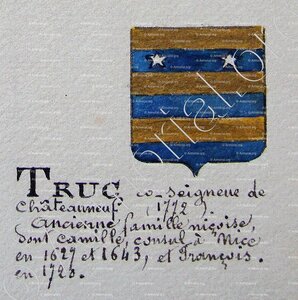 TRUC co-seigneur de
Châteauneuf 1772
Ancienne famille niçoise,
dont Camille, consul à Nice
en 1627 et 1643, et François.
en 1723.